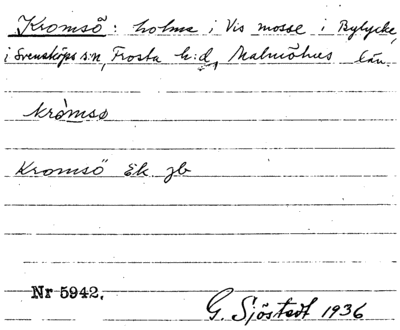 Kromsö: holme i Vis mosse i Bylycke,
i Svensköps s:n, Frosta h:d, Malmöhus län.
kròmsø
Kromsö Ek jb
Nr 5942.
G. Sjöstedt 1936